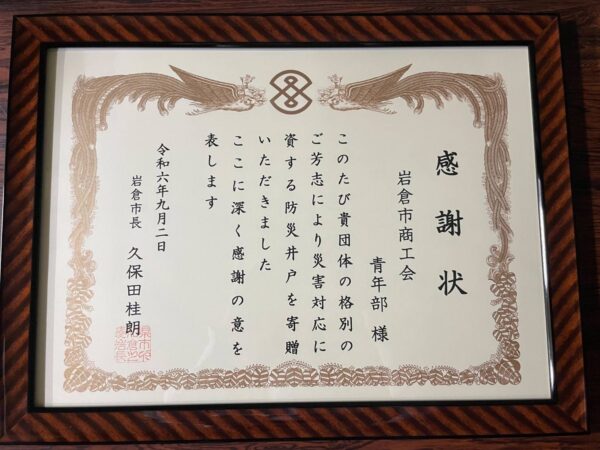 感謝状
岩倉市商工会
青年部 様
このたび貴団体の格別の
ご芳志により災害対応に
資する防災井戸を寄贈
いただきました
ここに深く感謝の意を
表します
令和六年九月二日
岩倉市長 久保田桂朗